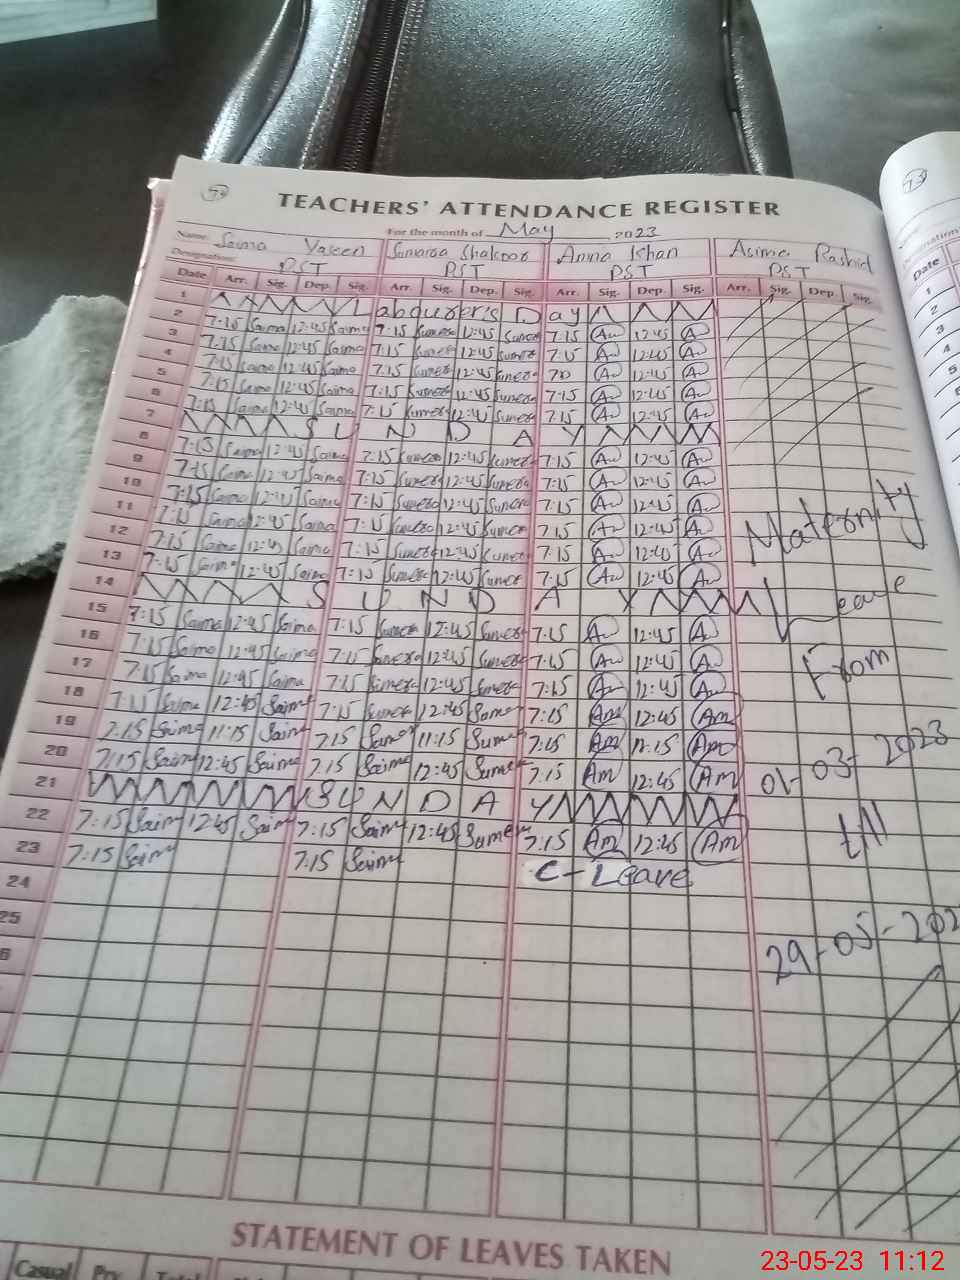 TEACHERS' ATTENDANCE REGISTER
For the month of May 2023
Name: Saima Yaseen Anna Khan Asima Rashid
Designation: PST PST PST PST
Date Arr. Sig. Dep. Sig. Arr. Sig. Dep. Sig. Arr. Sig. Dep. Sig. Arr. Sig. Dep. Sig.
1 Labourer's Day
2 7:15 Saima 12:45 Saima 7:15 Sumera 12:45 Sumera 7:15 Am 12:45 Am
3 7:15 Saima 12:45 Saima 7:15 Sumera 12:45 Sumera 7:15 Am 12:45 Am
4 7:15 Saima 12:45 Saima 7:15 Sumera 12:45 Sumera Am 12:45 Am
5 7:15 Saima 12:45 Saima 7:15 Sumera 12:45 Sumera 7:15 Am 12:45 Am
6 7:15 Saima 12:45 Saima 7:15 Sumera 12:45 Sumera 7:15 Am 12:45 Am
7 SUNDAY
8 7:15 Saima 12:45 Saima 7:15 Sumera 12:45 Sumera 7:15 Am 12:45 Am
9 7:15 Saima 12:45 Saima 7:15 Sumera 12:45 Sumera 7:15 Am 12:45 Am
10 7:15 Saima 12:45 Saima 7:15 Sumera 12:45 Sumera 7:15 Am 12:45 Am
11 7:15 Saima 12:45 Saima 7:15 Sumera 12:45 Sumera 7:15 Am 12:45 Am
12 7:15 Saima 12:45 Saima 7:15 Sumera 12:45 Sumera 7:15 Am 12:45 Am
13 7:15 Saima 12:45 Saima 7:15 Sumera 12:45 Sumera 7:15 Am 12:45 Am
14 SUNDAY
15 7:15 Saima 12:45 Saima 7:15 Sumera 12:45 Sumera 7:15 Am 12:45 Am
16 7:15 Saima 12:45 Saima 7:15 Sumera 12:45 Sumera 7:15 Am 12:45 Am
17 7:15 Saima 12:45 Saima 7:15 Sumera 12:45 Sumera 7:15 Am 12:45 Am
18 7:15 Saima 12:45 Saima 7:15 Sumera 12:45 Sumera 7:15 Am 12:45 Am
19 7:15 Saima 11:15 Saima 7:15 Sumera 11:15 Sumera 7:15 Am 11:15 Am
20 7:15 Saima 12:45 Saima 7:15 Saima 12:45 Sumera 7:15 Am 12:45 Am
21 SUNDAY
22 7:15 Saima 12:45 Saima 7:15 Saima 12:45 Sumera 7:15 Am 12:45 Am
23 7:15 Saima 7:15 Saima C-Leave
24
25
Maternity
Leave
From
01-03-2023
till
29-05-202
STATEMENT OF LEAVES TAKEN
Casual Prv. Total
73
Date
1
2
3
4
5
6
7
8
9
23-05-23 11:12